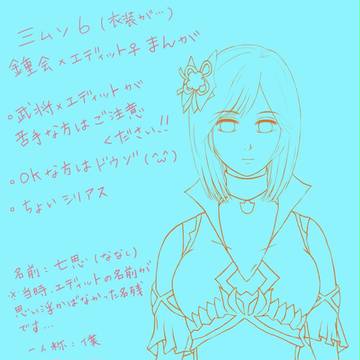 三ムソ6(衣装が…)
鍾会×エディット♀まんが
・武将×エディットが
苦手な方はご注意
ください!!
・OKな方はドウゾ(^ω^)
・ちょいシリアス
名前:七思(ななし)
※当時、エディットの名前が
思い浮かばなかった名残
です…
一人称:僕